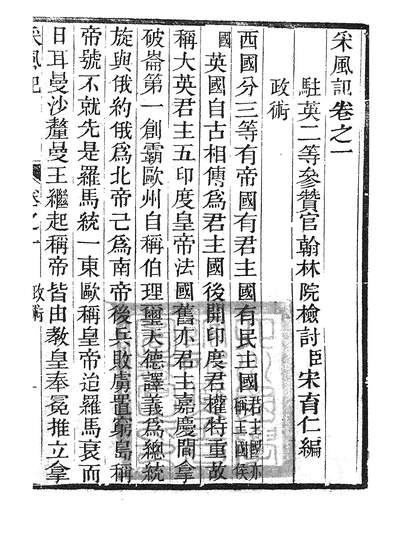 采風記卷之一
駐英二等參贊官翰林院檢討臣宋育仁編
政術
西國分三等有帝國有君主國有民主國君主國亦稱王國侯
國英國自古相傳爲君主國後開印度君權特重故
稱大英君主五印度皇帝法國舊亦君主嘉慶間拿
破崙第一創霸歐州自稱伯理璽天德譯義爲總統
旋與俄約俄爲北帝己爲南帝後兵敗虜置窮島稱
帝號不就先是羅馬統一東歐稱皇帝迨羅馬衰而
日耳曼沙釐曼王繼起稱帝皆由教皇奉冕推立拿
采風記 卷之一 政術